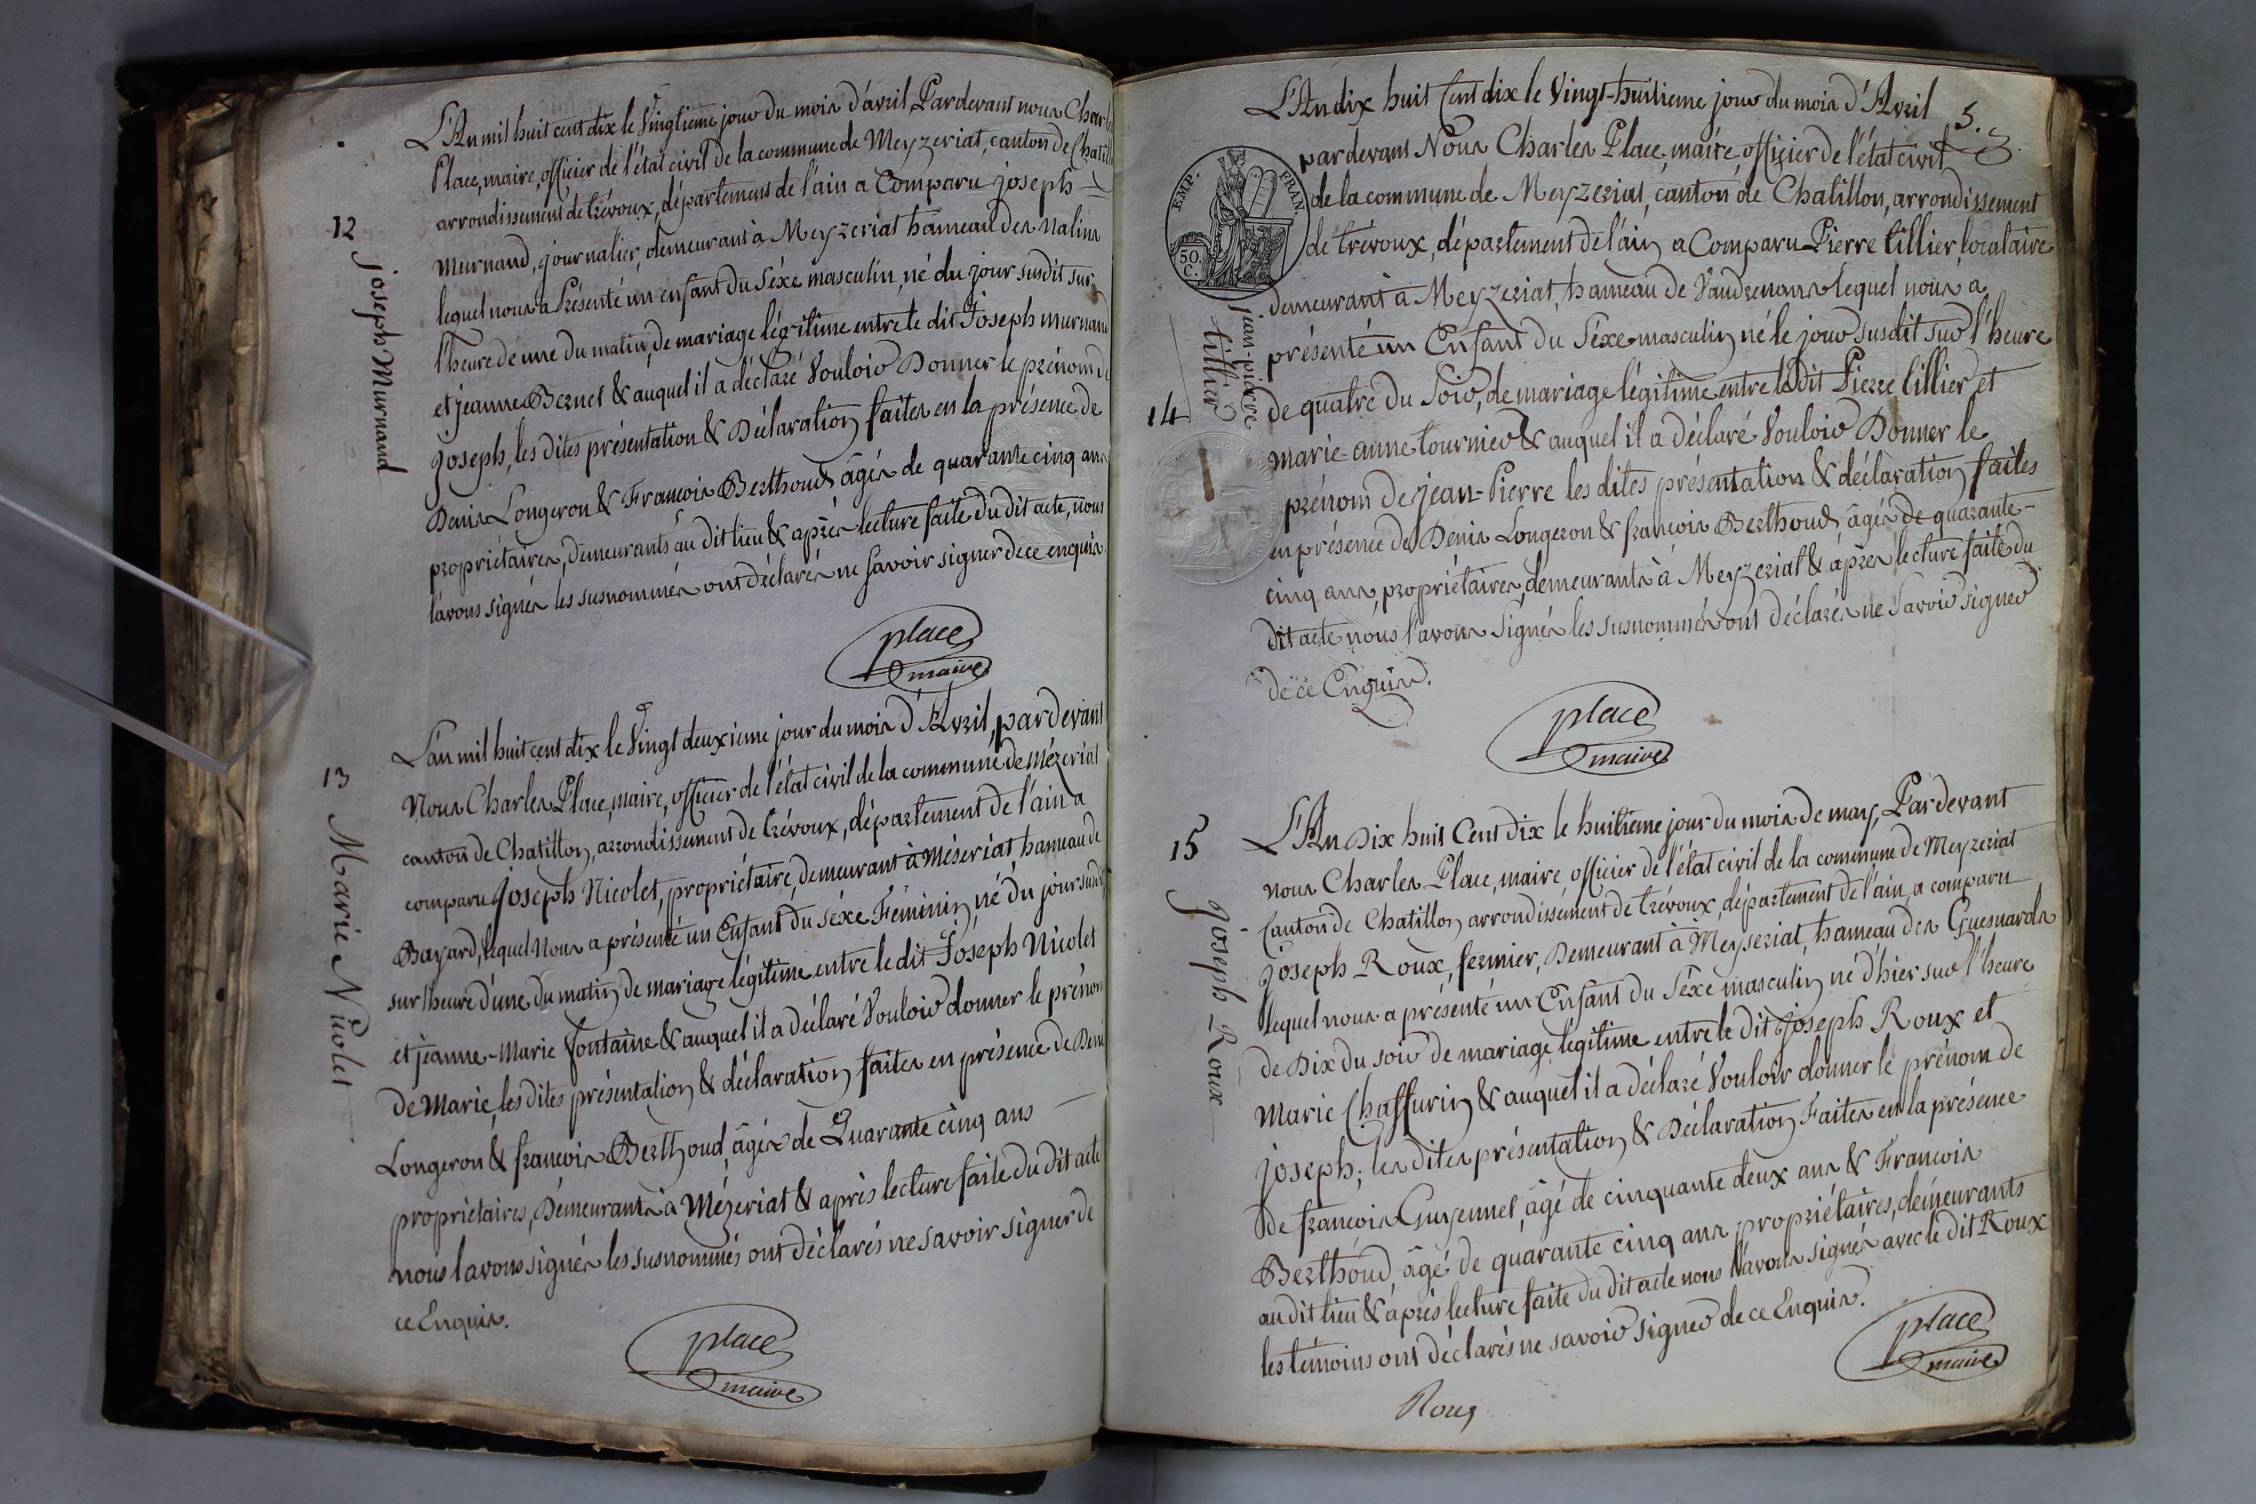 L'An mil huit cent dix le Vingtieme jour du mois d'avril Pardevant nous Charles
Place, maire, officier de l'état civil de la commune de Meyzeriat, canton de Chatill
arrondissement de trévoux, département de l'ain a Comparu joseph
Murnand, journalier, demeurant à Meyzeriat hameau des Malins
lequel nous a Présenté un enfant du Séxe masculin, né du jour susdit sur
l'heure de une du matin, de mariage légitime entre le dit Joseph murnand
et jeanne Bernet & auquel il a déclaré Vouloir Donner le prénom de
joseph, les dites présentation & Déclaration faites en la présence de
Denis Longeron & Francois Berthoud âgés de quarante cinq ans
propriétaires, demeurants au dit lieu & après lecture faite du dit acte, nous
l'avons signés les susnommés ont déclarés ne savoir signer de ce enquis.
12
joseph Murnand
place
maire
L'an mil huit cent dix le Vingt deuxieme jour du mois d'Avril, pardevant
Nous Charles Place, maire, officier de l'état civil de la commune de Mézeriat
canton de Chatillon, arrondissement de trévoux, département de l'ain a
comparu joseph Nicolet, propriétaire, demeurant à Méseriat, hameau de
Bayard, lequel Nous a présenté un Enfant du séxe Féminin, né du jour susdit
sur l'heure d'une du matin, de mariage légitime entre le dit Joseph Nicolet
et jeanne-Marie fontaine & auquel il a déclaré Vouloir donner le prénom
de Marie, les dites présentation & déclaration faites en présence de Denis
Longeron & francois Berthoud, âgés de Quarante cinq ans
propriétaires, Demeurants à Mézeriat & après lecture faite du dit acte
nous l'avons signés les susnommés ont déclarés ne savoir signer de
ce Enquis.
13
Marie Nicolet
place
maire
5.
L'An dix huit Cent dix le Vingt-huitieme jour du mois d'Avril
pardevant Nous Charles Place, maire, officier de l'état civil
de la commune de Meyzeriat, canton de Chatillon, arrondissement
de trévoux, département de l'ain a Comparu Pierre tillier, locataire
demeurant à Meyzeriat, hameau de Vaudrenans lequel nous a
présenté un Enfant du Séxe masculin né le jour susdit sur l'heure
de quatre du Soir, de mariage légitime entre le dit Pierre tillier et
marie-anne tournier & auquel il a déclaré Vouloir Donner le
prénom de jean-Pierre les dites présentation & déclaration faites
en présence de Denis Longeron & francois Berthoud, âgés de quarante-
cinq ans, propriétaires, demeurants à Meyzeriat & après lecture faite du
dit acte nous l'avons Signés les susnommés ont déclarés ne Savoir signer
de ce Enquis.
EMP. FRAN.
50.
C.
14
jean-pierre
tillier
place
maire
L'An Dix huit Cent Dix le huitieme jour du mois de may, Pardevant
nous Charles Place, maire, officier de l'état civil de la commune de Meyzeriat
Canton de Chatillon, arrondissement de trévoux, département de l'ain, a comparu
joseph Roux, fermier, Demeurant à Meyseriat, hameau des Guesnards
lequel nous a présenté un Enfant du Séxe masculin né d'hier sur l'heure
de Dix du soir de mariage légitime entre le dit joseph Roux et
Marie Chaffurin & auquel il a déclaré Vouloir donner le prénom de
joseph; les dites présentation & Déclaration Faites en la présence
de francois Guyennet, âgé de cinquante deux ans & Francois
Berthoud, âgé de quarante cinq ans propriétaires, demeurants
au dit lieu & après lecture faite du dit acte nous l'avons signés avec le dit Roux
les témoins ont déclarés ne savoir signer de ce Enquis.
15
Joseph Roux
place
maire
Roux